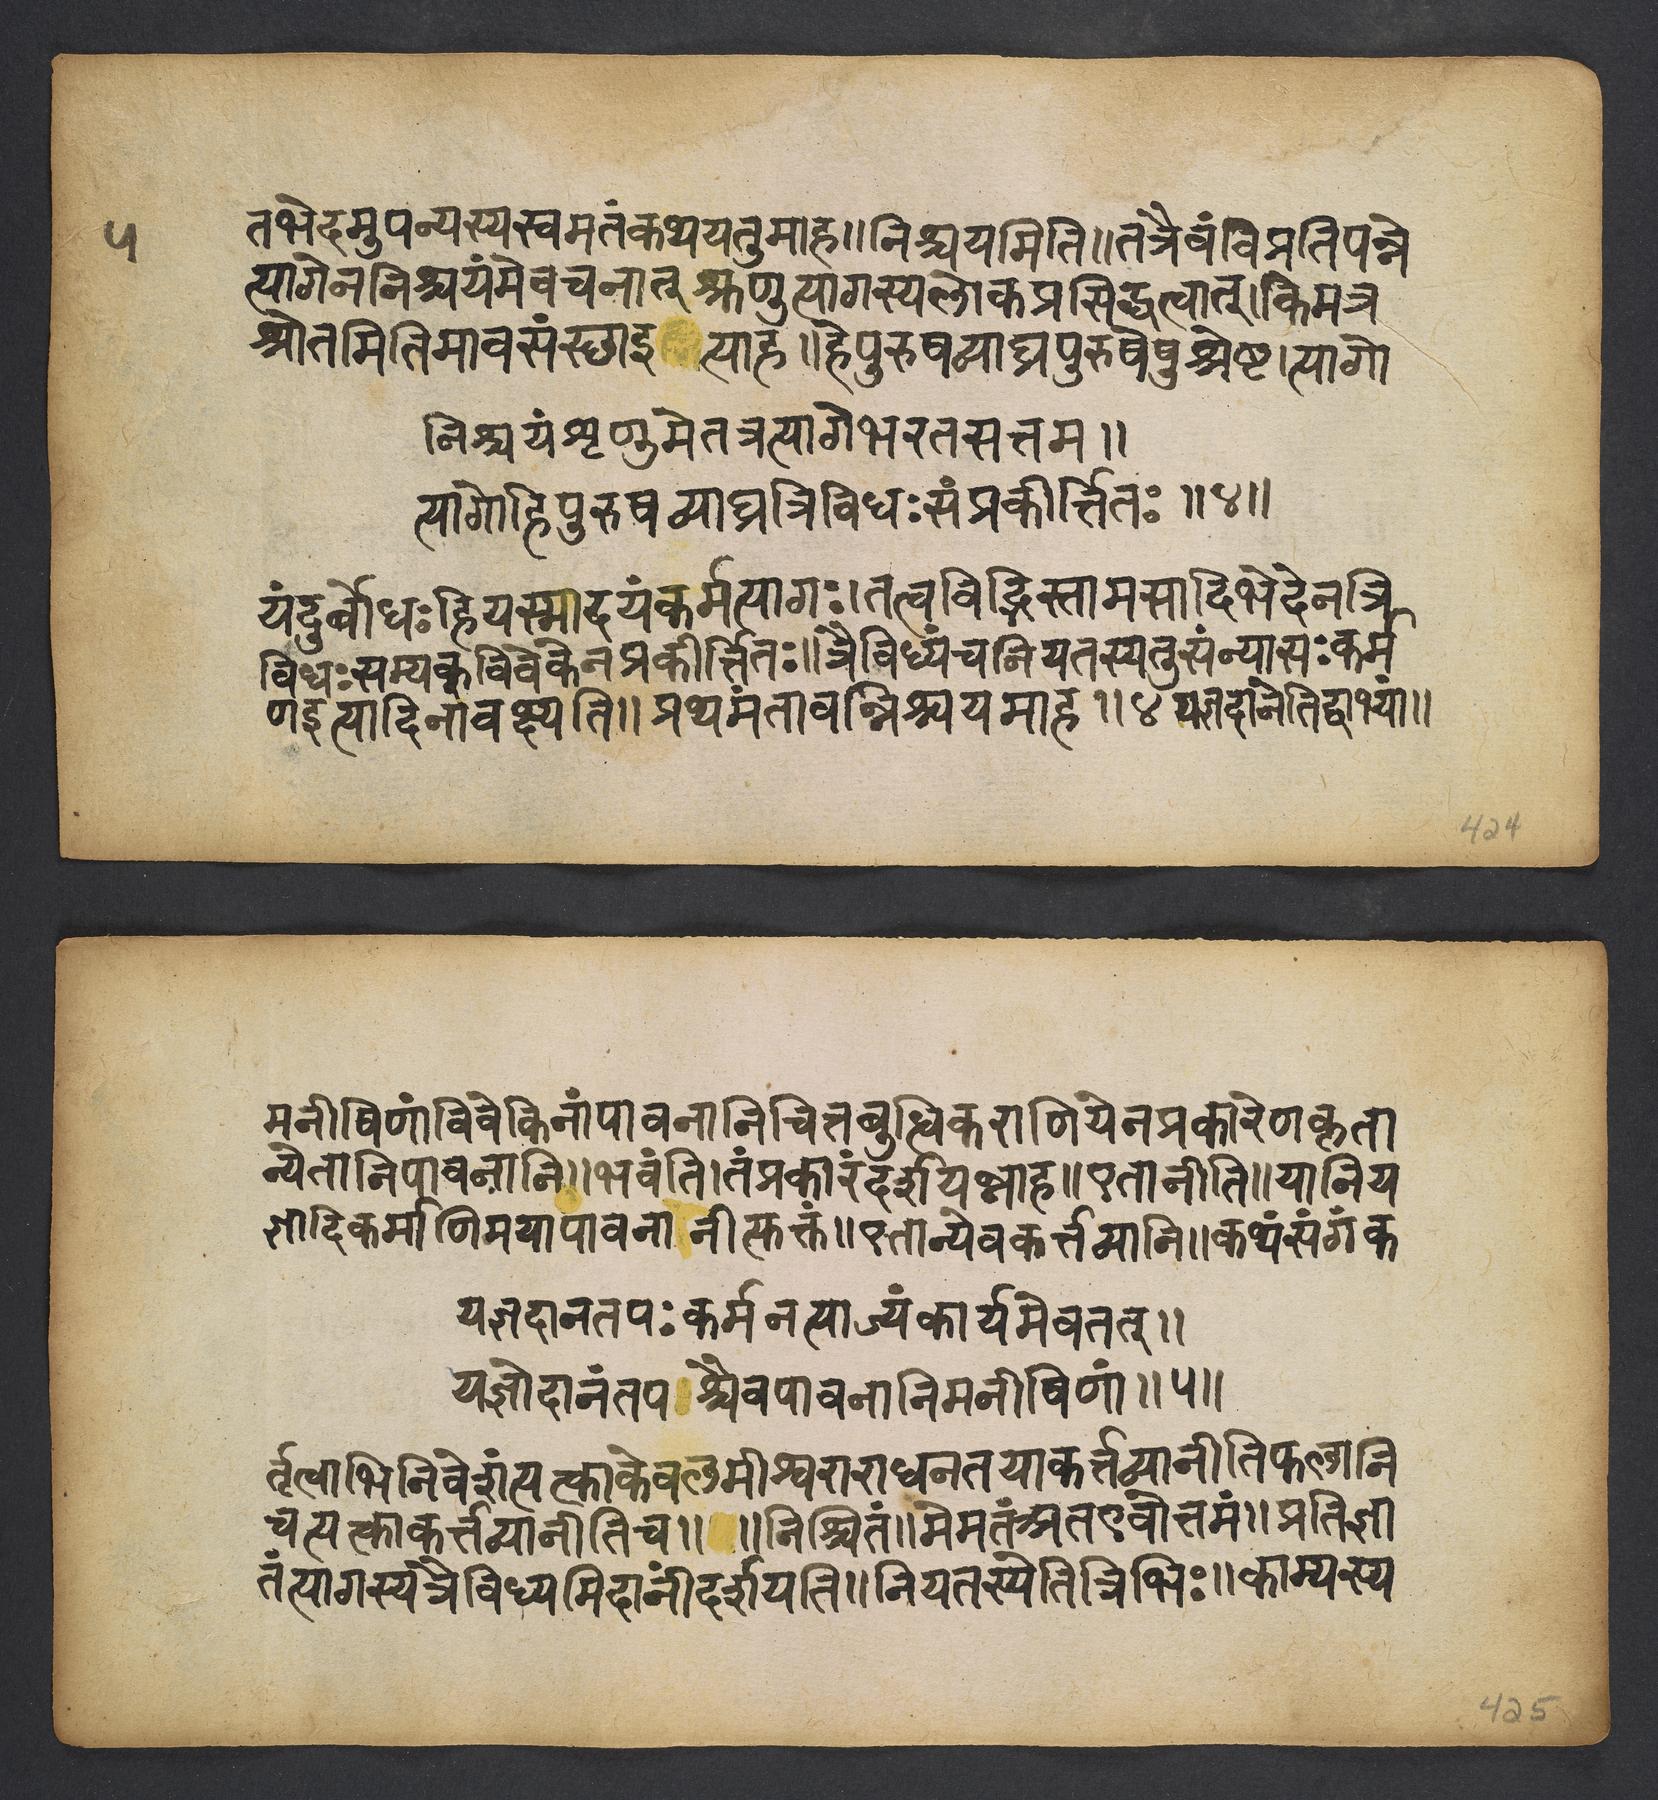 ५
तभेदमुपन्यस्यस्वमतंकथ्ययतुमाह॥निश्चयमिति॥तत्रैवंविप्रतिपन्ने
त्यागेननिश्चयंमेवचनात् शृणुत्यागस्यलोकप्रसिद्धत्वात्।किमत्र
श्रोतमितिमावसंस्छाइत्याह॥हेपुरुषव्याघ्रपुरुषेषुश्रेष्ट।त्यागो
निश्चयंशृणुमेतत्रत्यागेभरतसत्तम॥
त्यागोहिपुरुषव्याघ्रत्रिविधःसंप्रकीर्त्तितः॥४॥
यंदुर्बोधःहियस्मादयंकर्मत्यागः।तत्वविद्भिस्तामसादिभेदेनत्रि
विधःसम्यक्विवेकेनप्रकीर्त्तितः॥त्रैविध्यंचनियतस्यतुसंन्यासःकर्म
णइत्यादिनावक्ष्यति॥प्रथ्यमंतावन्निश्चयमाह॥४यज्ञदानेतिद्वाभ्यां॥
424
मनीषिणांविवेकिनांपावनानिचित्तबुत्धिकराणियेनप्रकारेणकृता
न्येतानिपावनानि॥भवंति।तंप्रकारंदर्शयन्नाह॥एतानीति॥यानिय
ज्ञादिकर्माणिमयापावनानीत्फक्तं॥एतान्येवकर्त्तव्यानि॥कथ्यंसंगंक
यज्ञदानतपःकर्मनत्याज्यंकार्यमेवतत्॥
यज्ञोदानंतपश्चैवपावनानिमनीषिणां॥५॥
र्तृत्वाभिनिवेशंत्यत्काकेवलमीश्वराराधनतयाकर्त्तव्यानीतिफलानि
चत्यत्काकर्त्तव्यानीतिच॥ ॥निश्चितं॥मेमतंअतएवोत्तमं॥प्रतिज्ञा
तंत्यागस्यत्रैविध्यमिदानींदर्शयति॥नियतस्येतित्रिभिः॥काम्यस्य
425